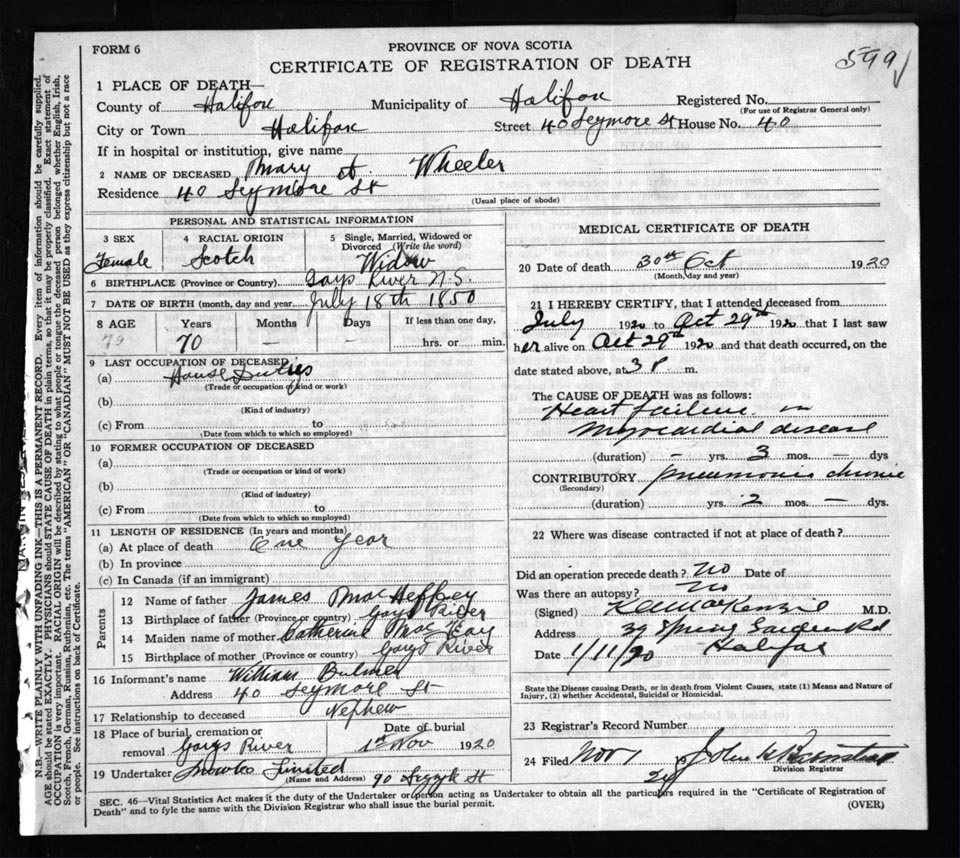 FORM 6
PROVINCE OF NOVA SCOTIA
CERTIFICATE OF REGISTRATION OF DEATH
599
1 PLACE OF DEATH—
County of Halifax Municipality of Halifax Registered No.
(For use of Registrar General only)
City or Town Halifax Street 40 Seymore St House No. 40
If in hospital or institution, give name
2 NAME OF DECEASED Mary A. Wheeler
Residence 40 Seymore St
(Usual place of abode)
PERSONAL AND STATISTICAL INFORMATION
3 SEX 4 RACIAL ORIGIN 5 Single, Married, Widowed or Divorced (Write the word)
Female Scotch Widow
6 BIRTHPLACE (Province or Country) Gays River N.S.
7 DATE OF BIRTH (month, day and year) July 18th 1850
8 AGE Years Months Days If less than one day,
70 — — hrs. or min.
9 LAST OCCUPATION OF DECEASED
(a) House Duties
(Trade or occupation or kind or work)
(b)
(Kind of industry)
(c) From to
(Date from which to which so employed)
10 FORMER OCCUPATION OF DECEASED
(a)
(Trade or occupation or kind of work)
(b)
(Kind of industry)
(c) From to
(Date from which to which so employed)
11 LENGTH OF RESIDENCE (In years and months)
(a) At place of death One year
(b) In province
(c) In Canada (if an immigrant)
Parents
12 Name of father James MacHeffey
13 Birthplace of father (Province or country) Gays River
14 Maiden name of mother Catherine MacKay
15 Birthplace of mother (Province or country) Gays River
16 Informant's name William Bulmer
Address 40 Seymore St
17 Relationship to deceased Nephew
18 Place of burial, cremation or removal Gays River
Date of burial 1st Nov 1920
19 Undertaker Snows Limited 90 St
(Name and Address)
MEDICAL CERTIFICATE OF DEATH
20 Date of death 30th Oct 1920
(Month, day and year)
21 I HEREBY CERTIFY, that I attended deceased from
July 1920 to Oct 29th 1920 that I last saw
her alive on Oct 29th 1920 and that death occurred, on the
date stated above, at 3 P m.
The CAUSE OF DEATH was as follows:
Heart failure in
Myocardial disease
(duration) — yrs. 3 mos. — dys
CONTRIBUTORY pneumonia chronic
(Secondary)
(duration) yrs. 2 mos. — dys.
22 Where was disease contracted if not at place of death?
Did an operation precede death? No Date of
Was there an autopsy? No
(Signed) MacKenzie M.D.
Address 39 Spring Garden Rd
Date 1/11/20 Halifax
State the Disease causing Death, or in death from Violent Causes, state (1) Means and Nature of
Injury, (2) whether Accidental, Suicidal or Homicidal.
23 Registrar's Record Number
24 Filed Nov 1 19 John
Division Registrar
SEC. 46—Vital Statistics Act makes it the duty of the Undertaker or person acting as Undertaker to obtain all the particulars required in the "Certificate of Registration of
Death" and to fyle the same with the Division Registrar who shall issue the burial permit. (OVER)
N.B.—WRITE PLAINLY WITH UNFADING INK—THIS IS A PERMANENT RECORD. Every item of information should be carefully supplied.
AGE should be stated EXACTLY. PHYSICIANS should STATE CAUSE OF DEATH in plain terms, so that it may be properly classified. Exact statement of
OCCUPATION is very important. RACIAL ORIGIN will be described by stating to what people or tongue the deceased person belonged whether English, Irish,
Scotch, French, German, Russian, Ruthenian, etc. The terms "AMERICAN" OR "CANADIAN" MUST NOT BE USED as they express citizenship but not a race
or people. See instructions on back of Certificate.